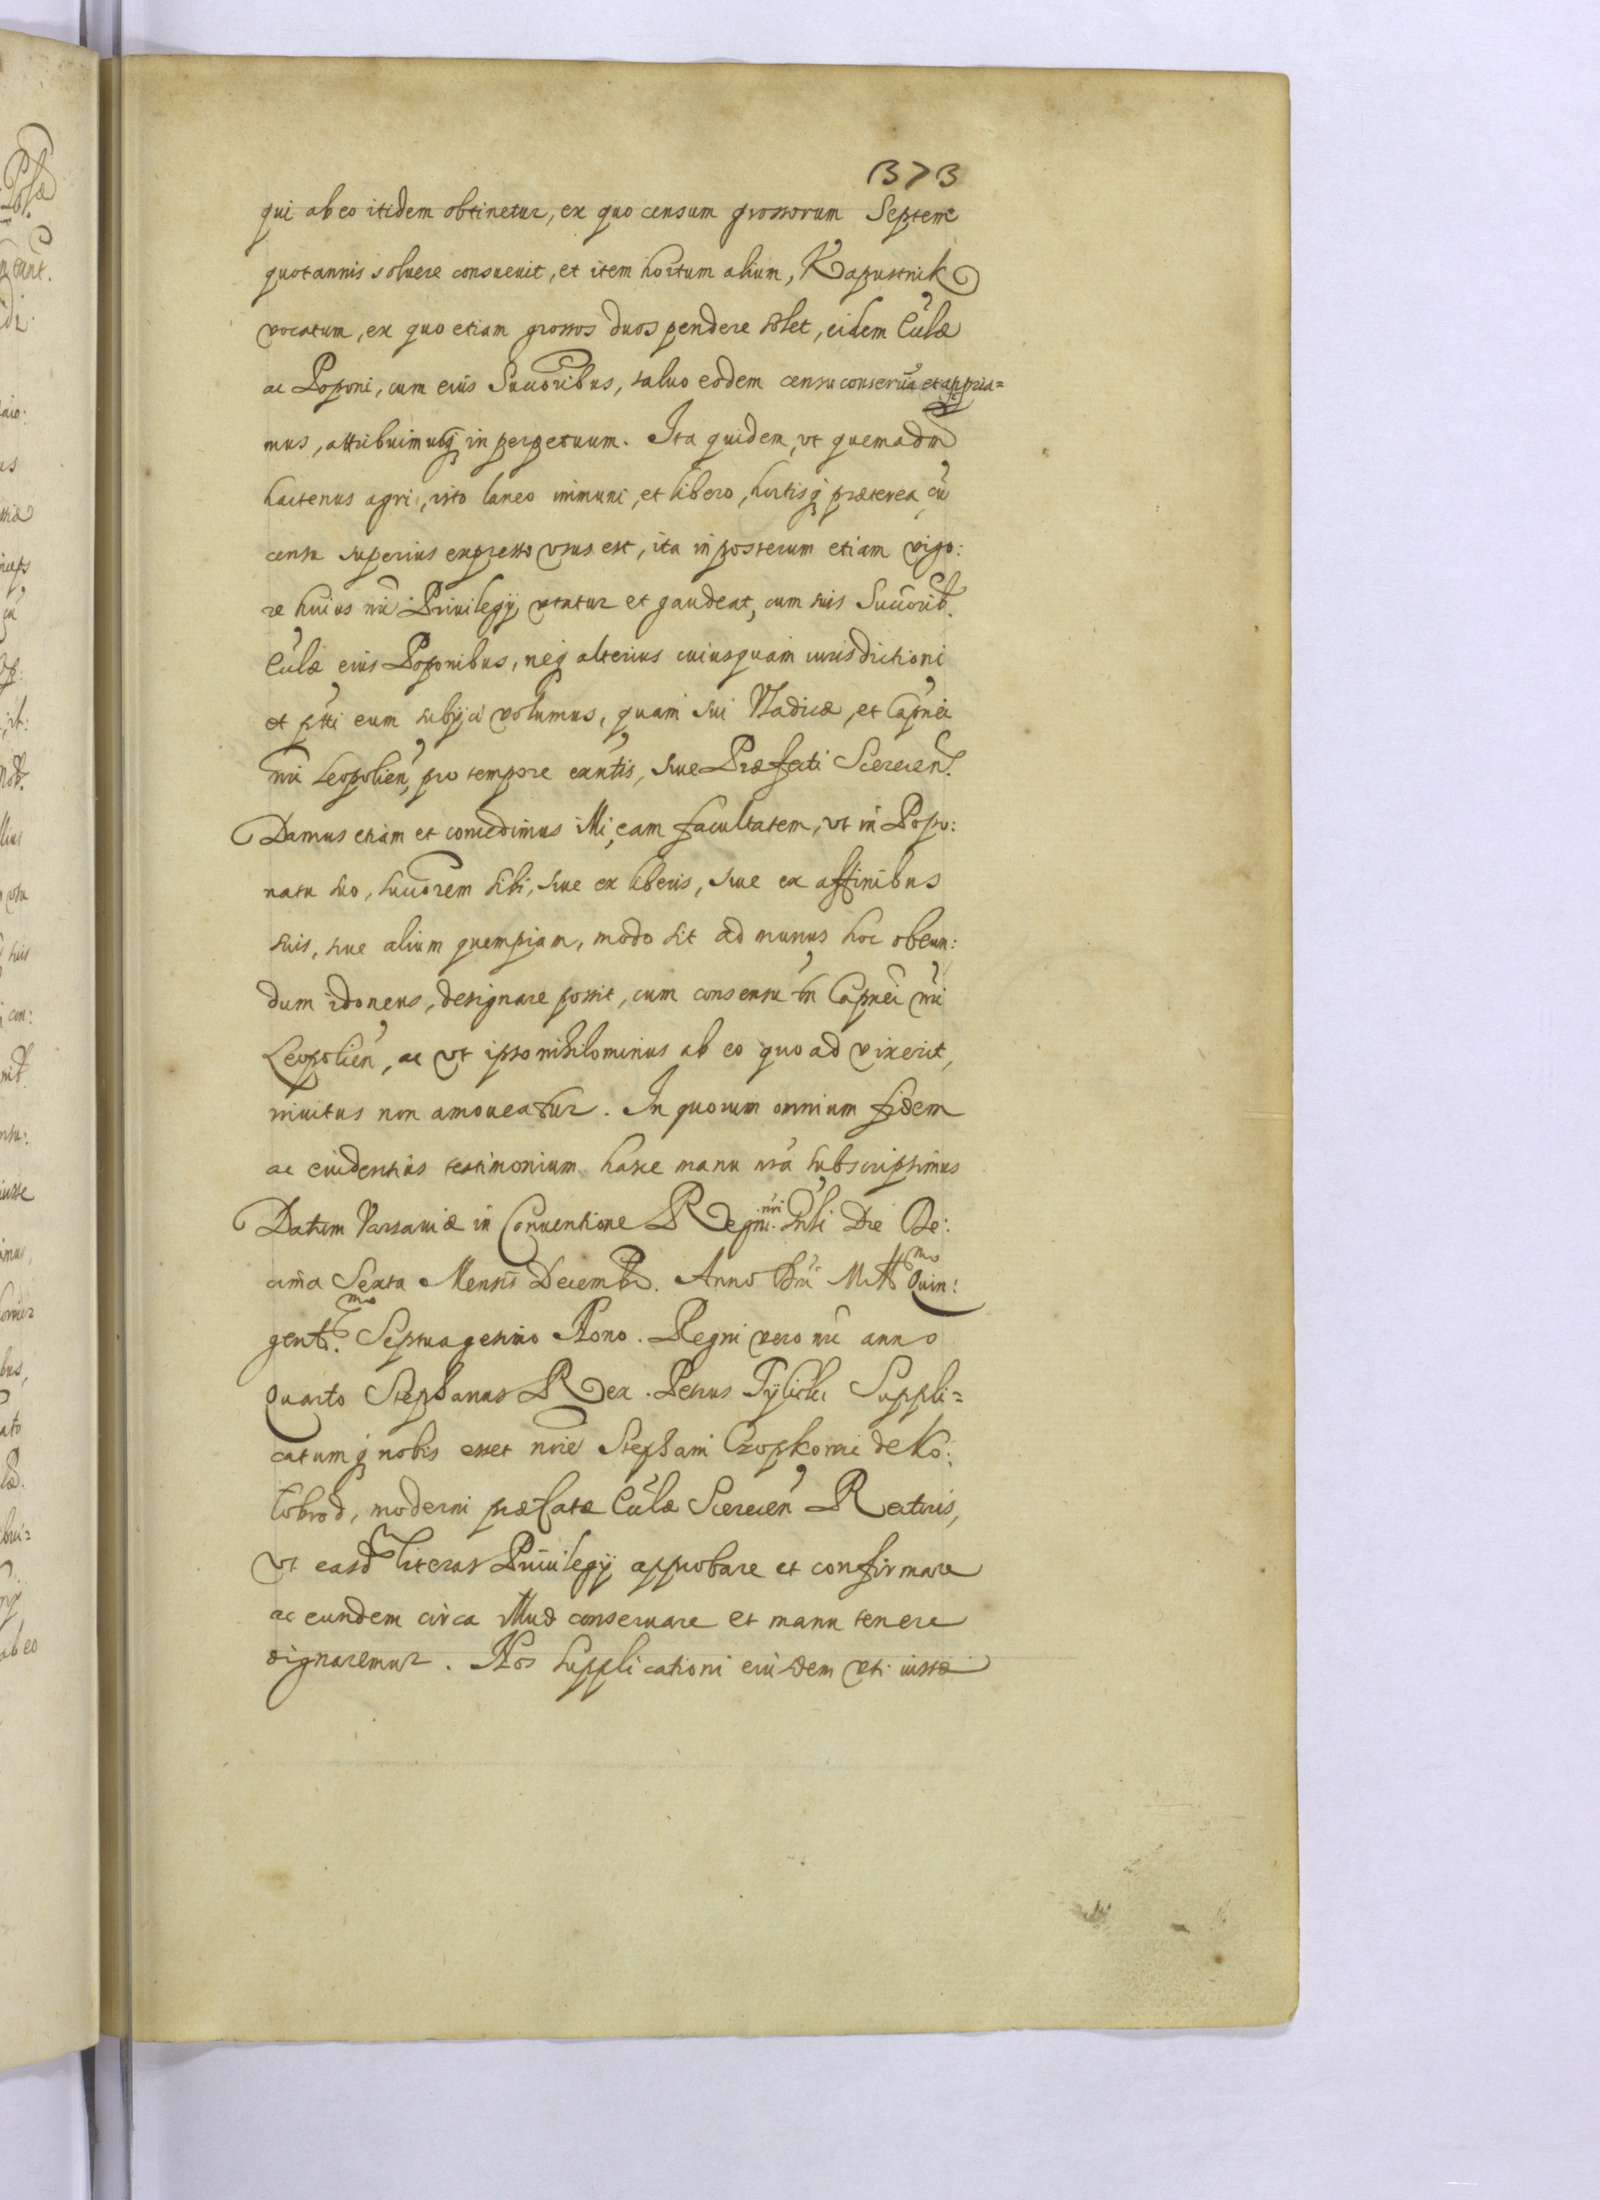 373
qui ab eo itidem obtinetur, ex quo censum grossorum Septem
quotannis soluere consueuit, et item hortum alium, Kapustnik
vocatum, ex quo etiam grossos duos pendere solet, eidem Cũlæ
ac Poponi, cum eius Succoribus, saluo eodem censu conseruã et appria=
mus, attribuimusq in perpetuum. Ita quidem, vt quemadm
hactenus agri, isto laneo immuni, et libero, hortisq præterea, cũ
censu superius expresso vsus est, ita in posterum etiam vigo:
re huius nri Priuilegij vtatur et gaudeat, cum suis Succorib.
Cũlæ eius Poponibus, neq alterius cuiusquam iurisdictioni
et ptti eum subijci volumus, quam sui Vladicæ, et Capnei
nri Leopolien, pro tempore exntis, siue Præfecti Scerecen.
Damus etiam et concedimus illi, eam facultatem, vt in Popo:
natu suo, succorem sibi, siue ex liberis, siue ex affinibus
suis, siue alium quempiam, modo sit ad munus hoc obeun:
dum idoneus, designare possit, cum consensu tn Capnei nri
Leopolien, ac vt ipso nihilominus ab eo quoad vixerit,
inuitus non amoueatur. In quorum omnium fidem
ac euidentius testimonium hasce manu nrã subscripsimus
Datum Varsauiæ in Conuentione Regni nri Gnli Die De:
cima Sexta Mensis Decembr. Anno Dni Mill mo Quin:
gent mo. Septuagesimo Nono. Regni vero nri anno
Quarto Stephanus Rex. Petrus Tylicki Suppli=
catumq nobis esset nnie Stephani Czopkowic de Ko:
lobrod, moderni præfatæ Cũlæ Scerecen Rectoris,
vt easd literas Priuilegij approbare et confirmare
ac eundem circa illud conseruare et manu tenere
dignaremur. Nos supplicationi eiusdem vti iustæ